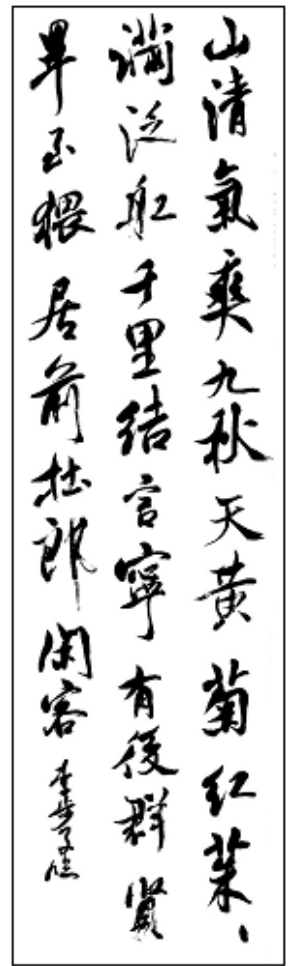 山清氣爽九秋天黃菊紅茱
滿泛舡千里結言寧有後群賢
畢至猥居前杜郎閑客